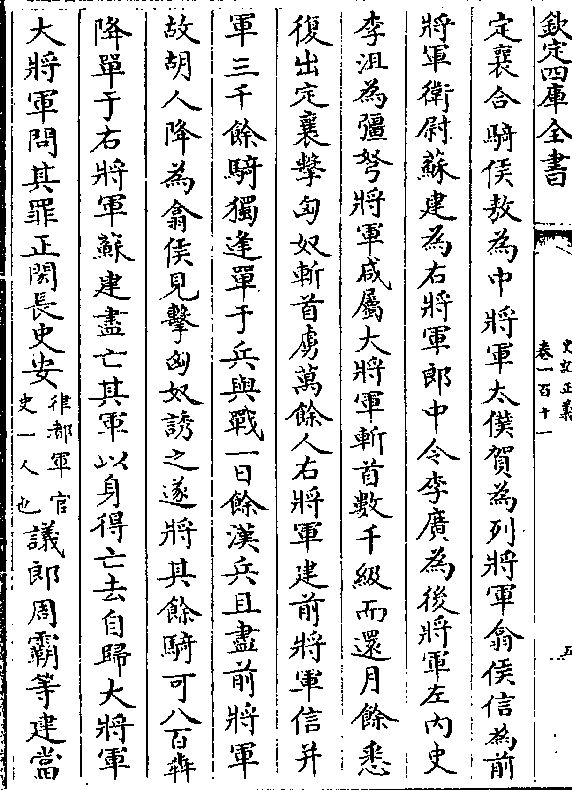 欽定四庫全書
史記正義
卷一百十一
五
定襄合騎侯敖為中將軍太僕賀為列將軍翕侯信為前
將軍衛尉蘇建為右將軍郎中令李廣為後將軍左內史
李沮為彊弩將軍咸屬大將軍斬首數千級而還月餘悉
復出定襄擊匈奴斬首虜萬餘人右將軍建前將軍信并
軍三千餘騎獨逢單于兵與戰一日餘漢兵且盡前將軍
故胡人降為翕侯見擊匈奴誘之遂將其餘騎可八百犇
降單于右將軍蘇建盡亡其軍以身得亡去自歸大將軍
大將軍問其罪正閎長史安律都軍官史一人也議郎周霸等建當